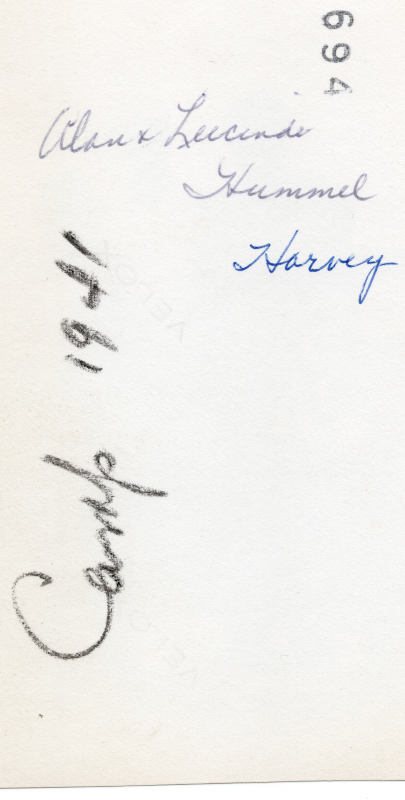 694
Alan & Lucinda
Hummel
Harvey
Camp 1941
VELOX
VELOX